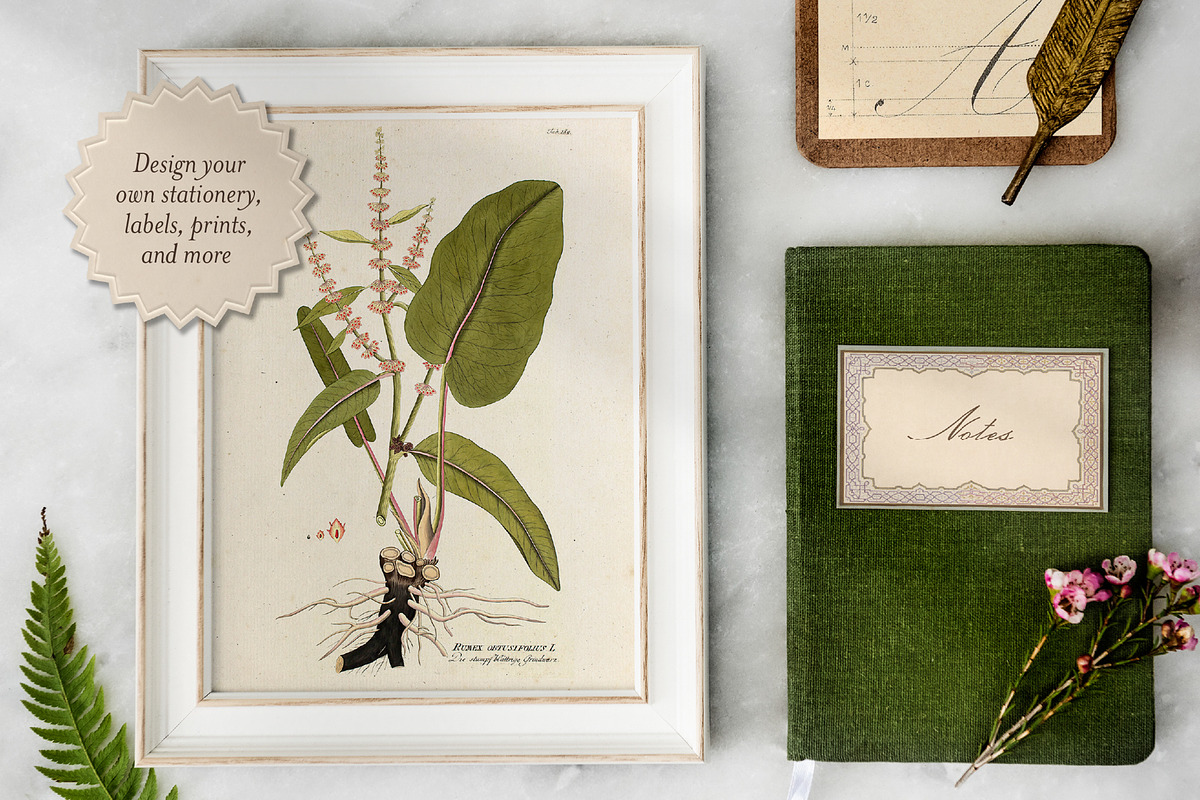 Design your
own stationery,
labels, prints,
and more
Tab. 184.
RUMEX OBTUSIFOLIUS L
Die stumpf Blättrige Grindwurz.
1 1/2
M
X
1 0
A
Notes